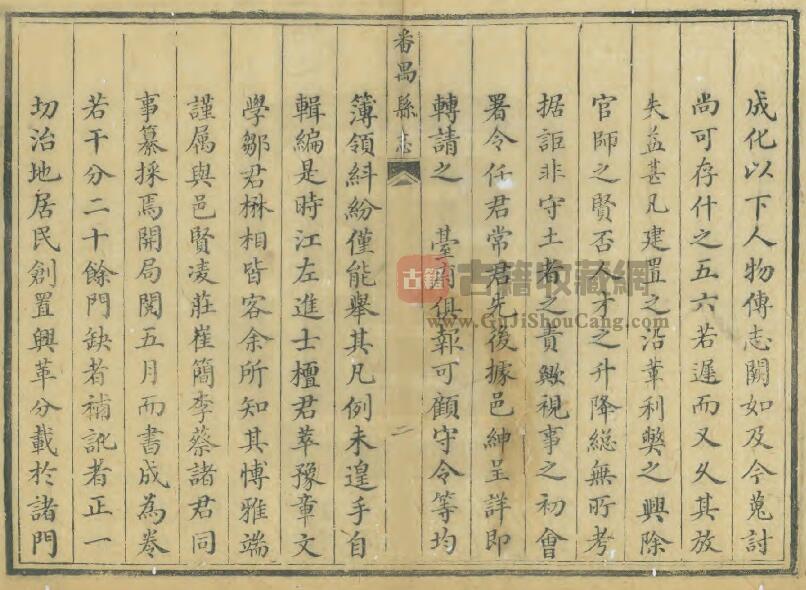 成化以下人物傳志闕如及今蒐討
尚可存什之五六若遲而又久其放
失益甚凡建置之沿革利獘之興除
官師之賢否人才之升降総無所考
据詎非守土者之責歟視事之初會
署令任君常君先後據邑紳呈詳即
轉請之 臺司俱報可顧守令等均
番禺縣志
二
簿領糾紛僅能舉其凡例未遑手自
輯編是時江左進士檀君萃豫章文
學鄒君楙相皆客余所知其博雅端
謹属與邑賢凌莊崔簡李蔡諸君同
事纂採焉開局閱五月而書成為卷
若干分二十餘門缺者補訛者正一
切治地居民創置興革分載於諸門
古籍
古籍收藏網
www.GuJiShouCang.com